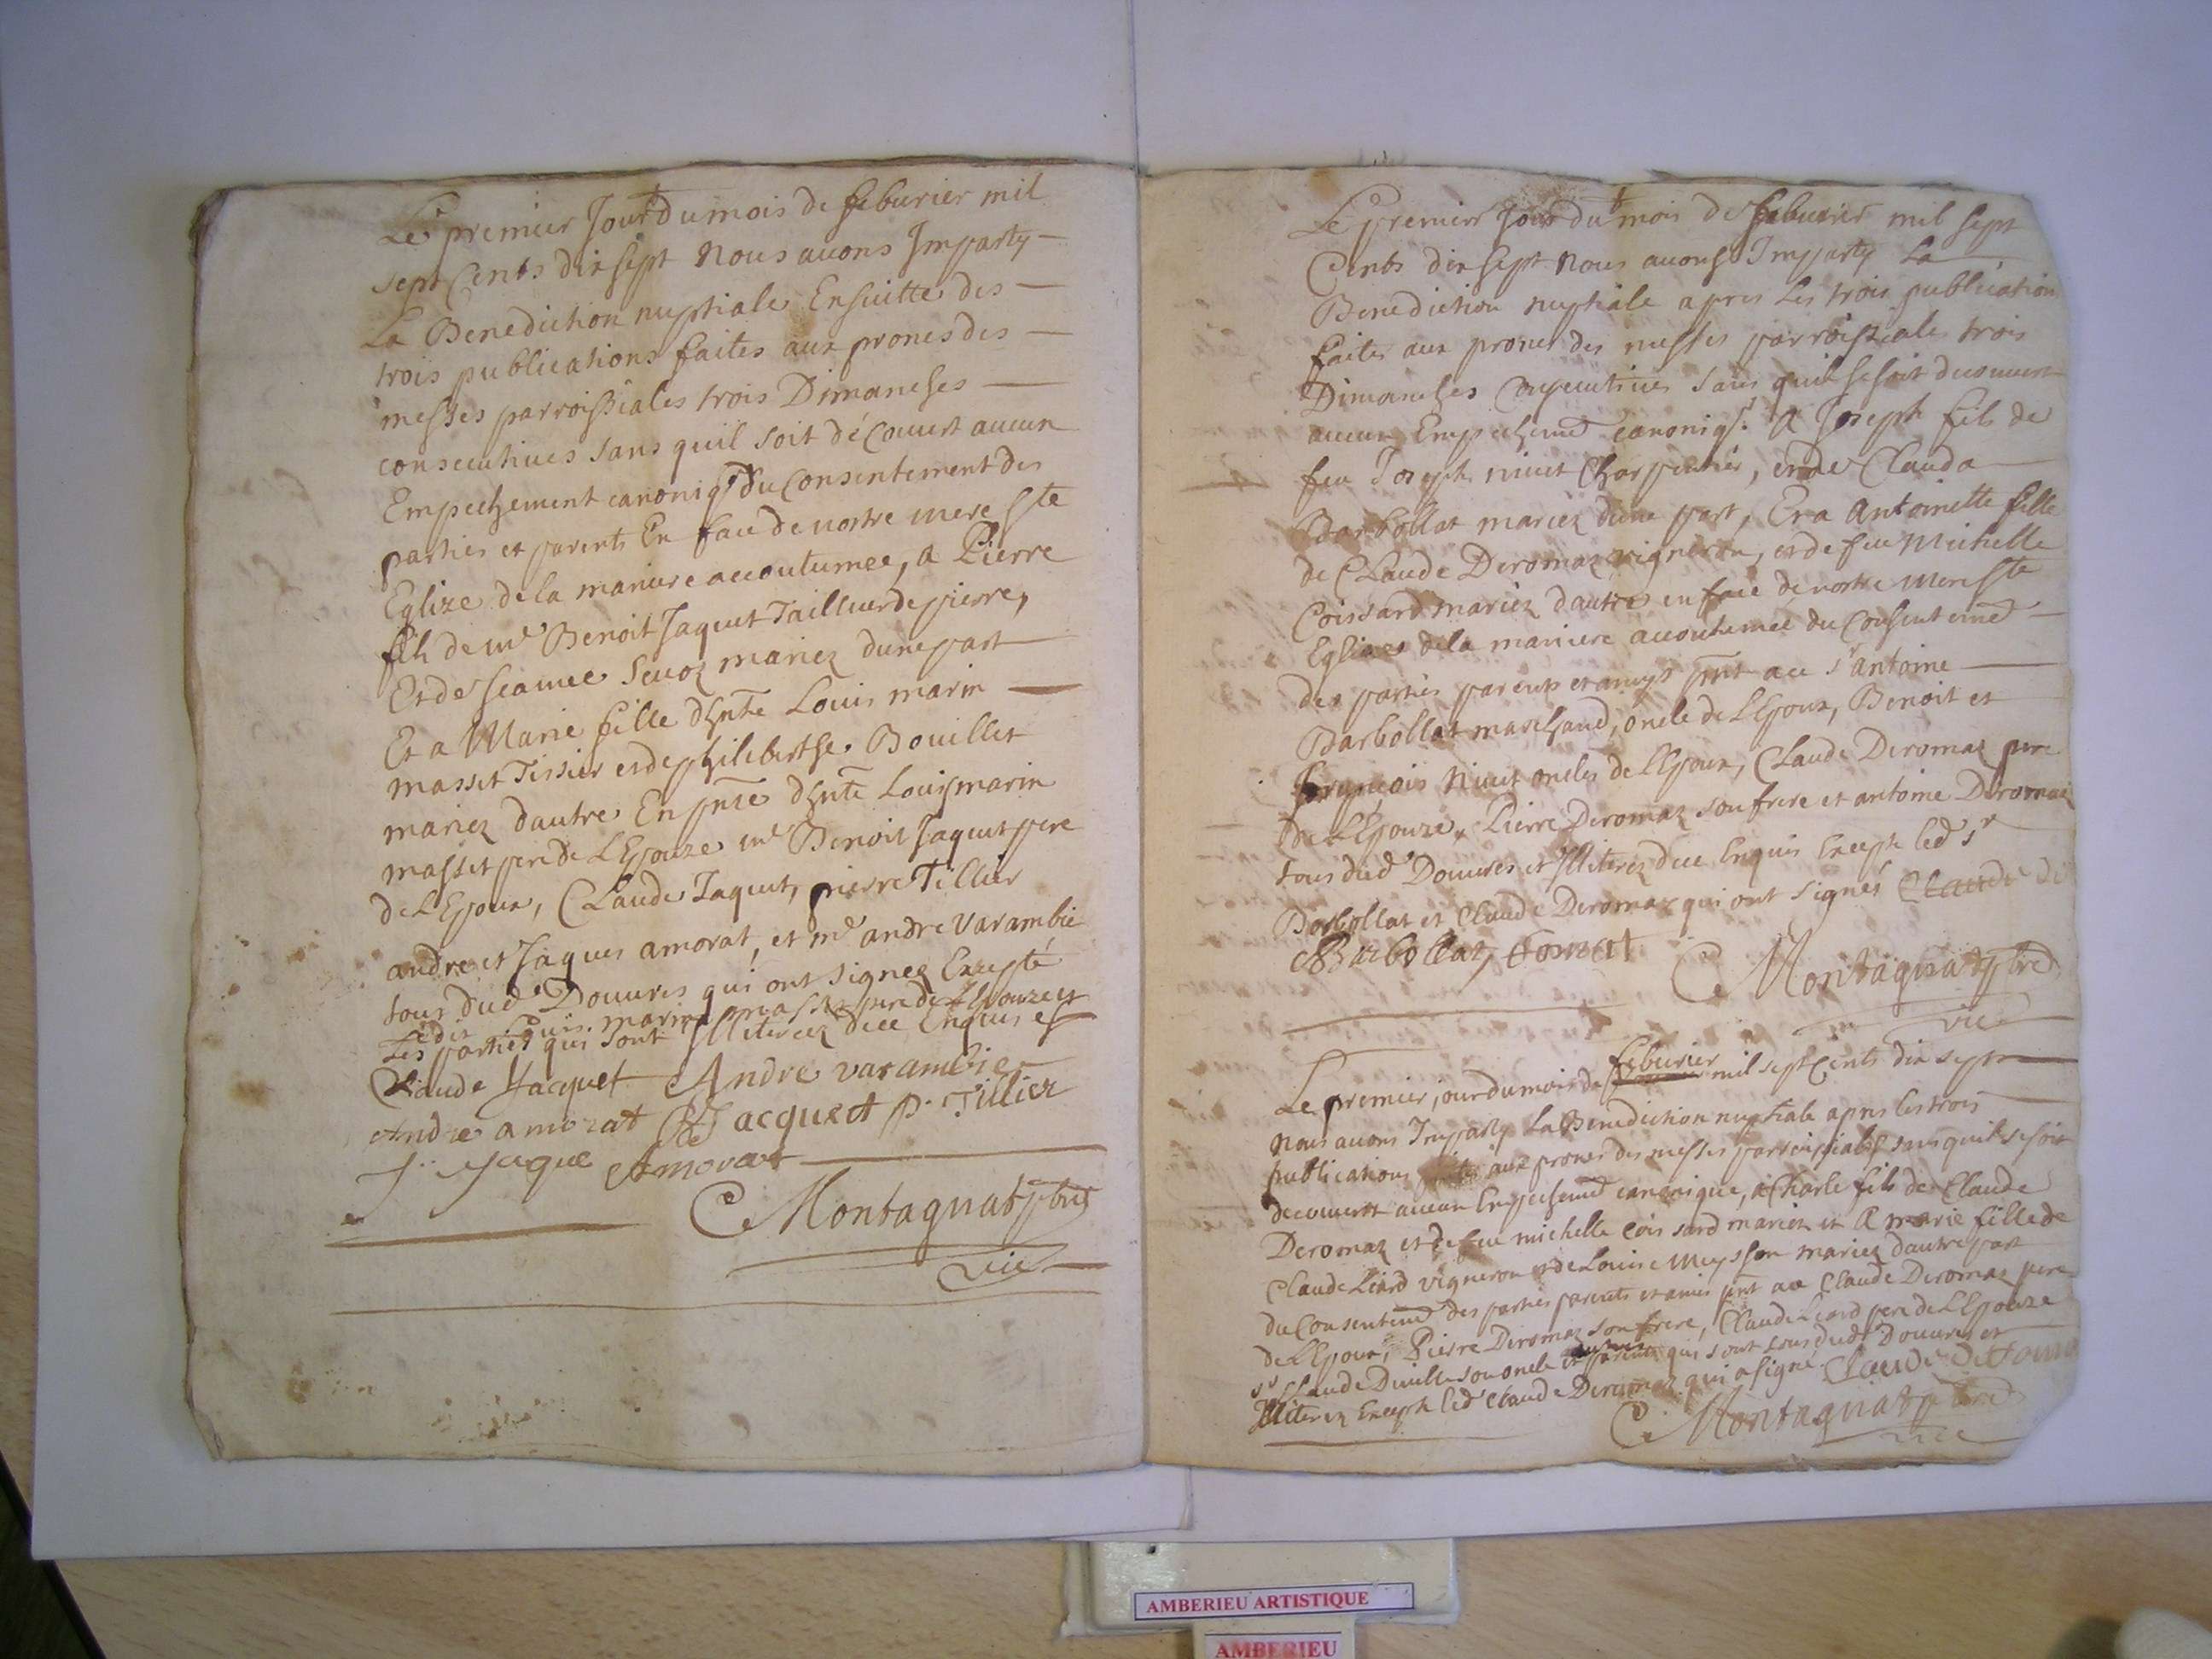 Le premier Jour du mois de feburier mil
sept Cents dix sept Nous auons Imparty
La Benediction nuptiale Ensuitte des
trois publications faites aux prones des
messes parroissiales trois Dimanches
consecutiues sans quil soit découuert aucun
Empechement canoniq. du Consentement des
parties et parents En face de nostre mere Ste
Eglize de la maniere accoutumee, a Pierre
fils de me Benoit Jaquet Tailleur de pierre,
Et de Jeanne Seuoz mariez dune part
Et a Marie fille dhnte Louis marin
masset Tissier et de philiberthe Bouillet
mariez dautre En pnce dhnte Louis marin
masset pere de LEpouze me Benoit Jaquet pere
de LEpoux, Claude Jaquet, pierre Tillier
andre et Jaques amorat, et me andre Varambie
tous dud Douures qui ont signez Excepté
ledit Louis marin masset pere de LEpouze et
Les parties qui sont Illiterez dece Enquis et
Claude Jacquet Andre varambier
Andre amorat B Jacquet p. Tillier
J. Jaque Amorat
C Montagnat pbre
vic
Le premier Jour du mois de feburier mil sept
Cents dix sept Nous auons Imparty La
Benediction nuptiale apres Les trois publication
faites aux prones des messes parroissiales trois
Dimanches Consecutiues sans quil se soit decouuert
aucun Empechemt canoniq. A Joseph fils de
feu Joseph niuet Charpentier, et de Clauda
Barbollat mariez dune part, Et a Antoinette fille
de Claude Deromaz vigneron, et de feu Michelle
Coissard mariez dautre en face de nostre mere Ste
Eglizes de la maniere accoutumée du Consentemt
des parties parents et amys pnt ace sr antoine
Barbollat marchand, oncle de LEpoux, Benoit et
françois Niuet oncles de LEpoux, Claude Deromaz pere
de LEpouze, Pierre Deromaz son frere et antoine Deromaz
tous dud Douures et Illiterez dece Enquis Except led sr
Barbollat et Claude Deromaz qui ont signés Claude De
A Barbollat Romat
C Montagnat pbre
vic
Le premier jour du mois de feburier mil sept Cents dix sept
Nous auons Imparty La Benediction nuptiale apres les trois
publications faites aux prones des messes parroissiales sans quil se soit
decouuert aucun Empechemt canonique, a Charle fils de Claude
Deromaz et de feu michelle Coissard mariez et A marie fille de
Claude Liard vigneron et de Louise Meysson mariez dautre part
du Consentemt des parties parents et amis pnt ace Claude Deromaz pere
de LEpoux, Pierre Deromaz son frere, Claude Liard pere de LEpouze
Claude son oncle et autres parents qui sont tous dudt Douures et
Illiterez Except led Claude Deromaz qui a signé. Claude De Roma
C Montagnat pbre
vic
AMBERIEU ARTISTIQUE
AMBERIEU